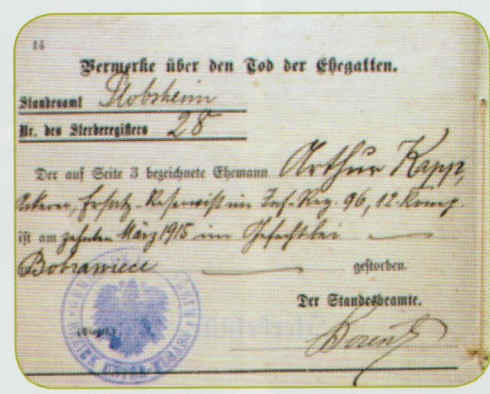 14
Vermerke über den Tod der Ehegatten.
Standesamt Stotzheim
Nr. des Sterberegisters 28
Der auf Seite 3 bezeichnete Ehemann Arthur Kapp,
Ackerer, Ersatz-Reservist im Inf.-Reg. 96, 12. Komp.
ist am zehnten März 1915 im Gefecht bei
Bobrawiece gestorben.
Der Standesbeamte.